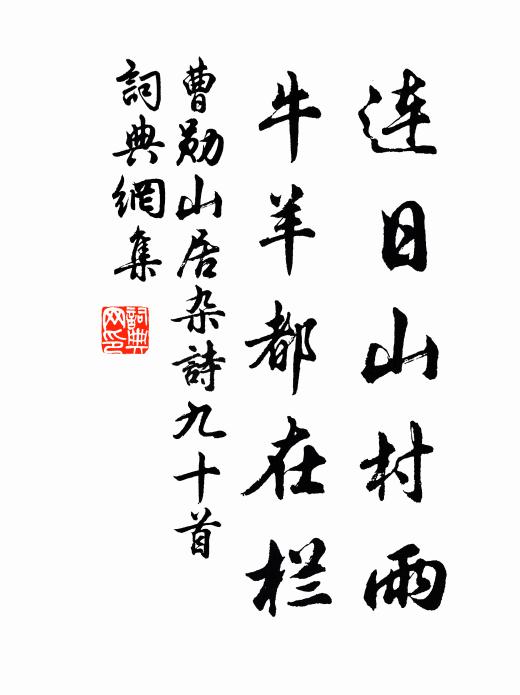 连日山村雨
牛羊都在栏
曹勋山居杂詩九十首
詞典網集
詞典网印